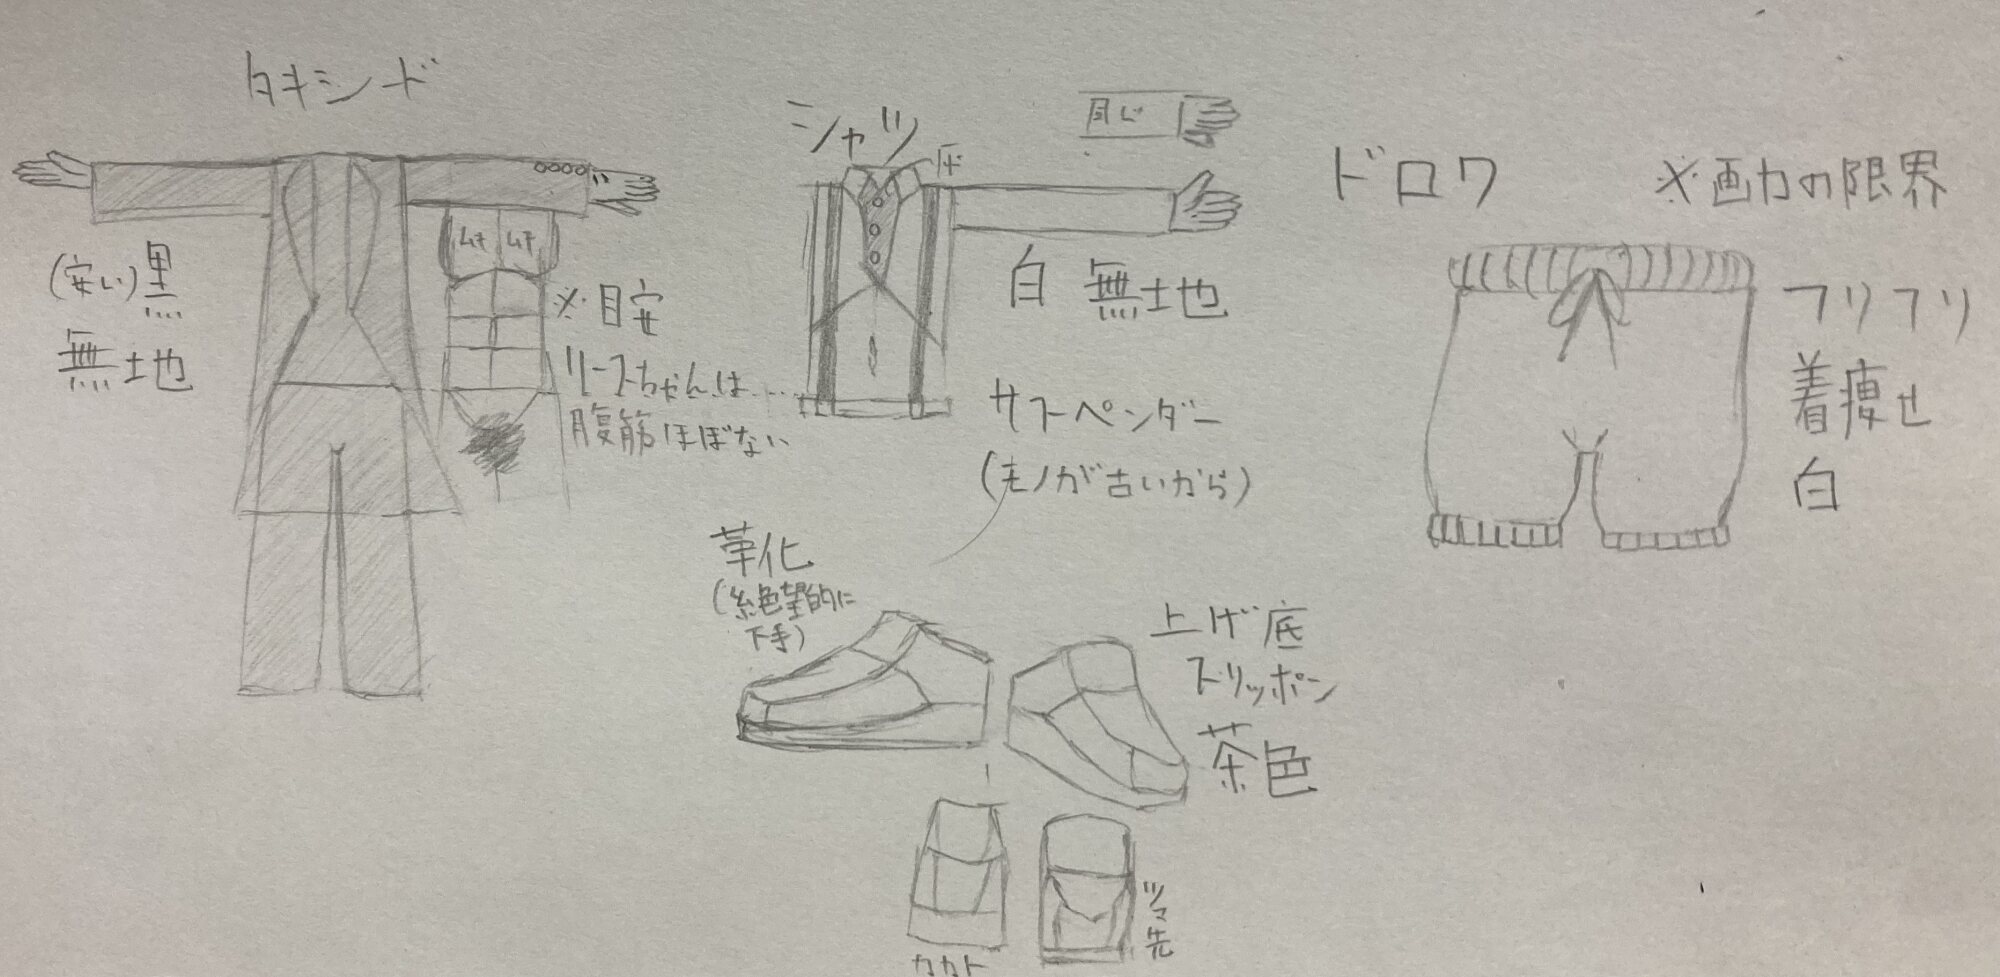 タキシード
(安い)黒
無地
ムチ ムチ
※目安
リースちゃんは……
腹筋ほぼない
シャツ
同じ
白 無地
サスペンダー
(モノが古いから)
革化
(絶望的に
下手)
上げ底
スリッポン
茶色
カカト
ツマ先
ドロワ
※画力の限界
フリフリ
着痩せ
白